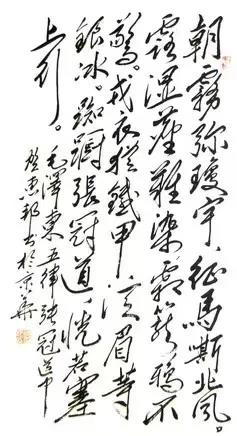 朝霧弥瓊宇、征馬嘶北風。
露湿塵難染、霜籠鴉不
驚。戎衣猶鐵甲 须眉等
銀冰。踟蹰張冠道、恍若塞
上行。
毛澤東五律張冠道中
惠邦书於京華